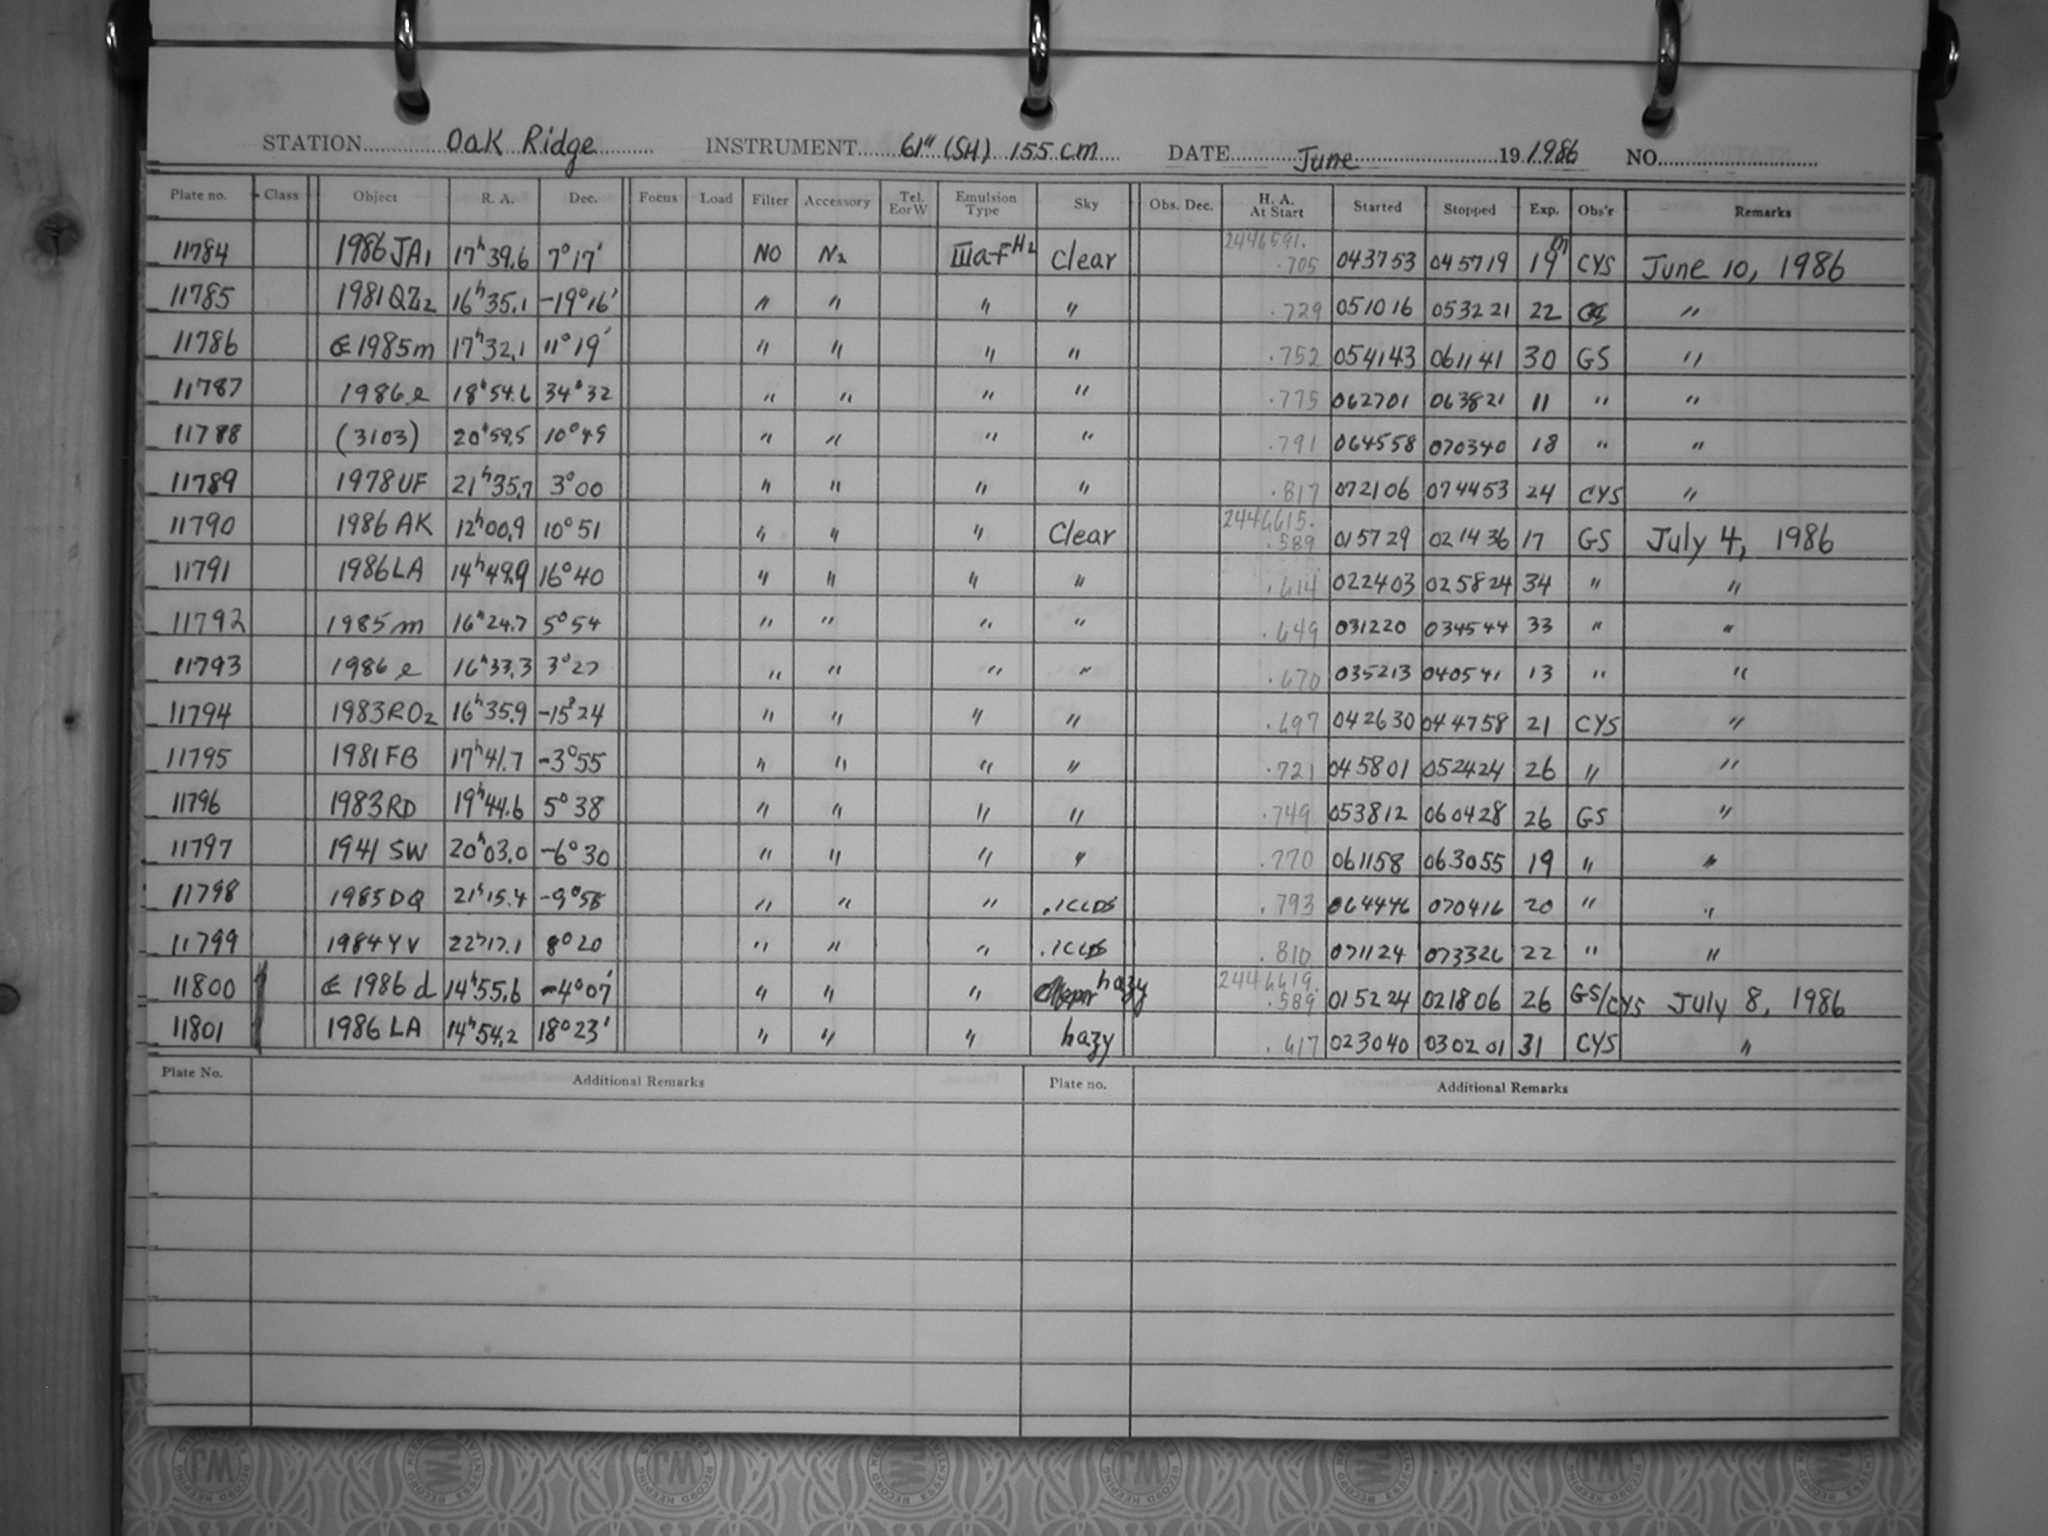 STATION Oak Ridge INSTRUMENT 61" (SH) 155 cm DATE June 19 1986 NO.
Plate no. Class Object R. A. Dec. Focus Load Filter Accessory Tel. E or W Emulsion Type Sky Obs. Dec. H. A. At Start Started Stopped Exp. Obs'r Remarks
11784 1986 JA1 17h39.6 7°17' NO N2 IIIa-F H2 Clear 2446591.705 043753 045719 19m CYS June 10, 1986
11785 1981 QZ2 16h35.1 -19°16' " " " " .729 051016 053221 22 "
11786 1985m 17h32.1 11°19' " " " " .752 054143 061141 30 GS "
11787 1986e 18h54.6 34°32 " " " " .775 062701 063821 11 " "
11788 (3103) 20h59.5 10°49 " " " " .791 064558 070340 18 " "
11789 1978 UF 21h35.7 3°00 " " " " .817 072106 074453 24 CYS "
11790 1986 AK 12h00.9 10°51 " " " Clear 2446615.589 015729 021436 17 GS July 4, 1986
11791 1986 LA 14h49.9 16°40 " " " " .614 022403 025824 34 " "
11792 1985m 16h24.7 5°54 " " " " .649 031220 034544 33 " "
11793 1986e 16h33.3 3°27 " " " " .670 035213 040541 13 " "
11794 1983 RO2 16h35.9 -15°24 " " " " .697 042630 044758 21 CYS "
11795 1981 FB 17h41.7 -3°55 " " " " .721 045801 052424 26 " "
11796 1983 RD 19h44.6 5°38 " " " " .749 053812 060428 26 GS "
11797 1941 SW 20h03.0 -6°30 " " " " .770 061158 063055 19 " "
11798 1985 DQ 21h15.4 -9°58 " " " .1 CLDS .793 064446 070416 20 " "
11799 1984 YV 22h17.1 8°20 " " " .1 CLDS .810 071124 073326 22 " "
11800 1986 d 14h55.6 -4°07' " " " hazy 2446619.589 015224 021806 26 GS/CYS July 8, 1986
11801 1986 LA 14h54.2 18°23' " " " hazy .617 023040 030201 31 CYS "
Plate No. Additional Remarks Plate no. Additional Remarks